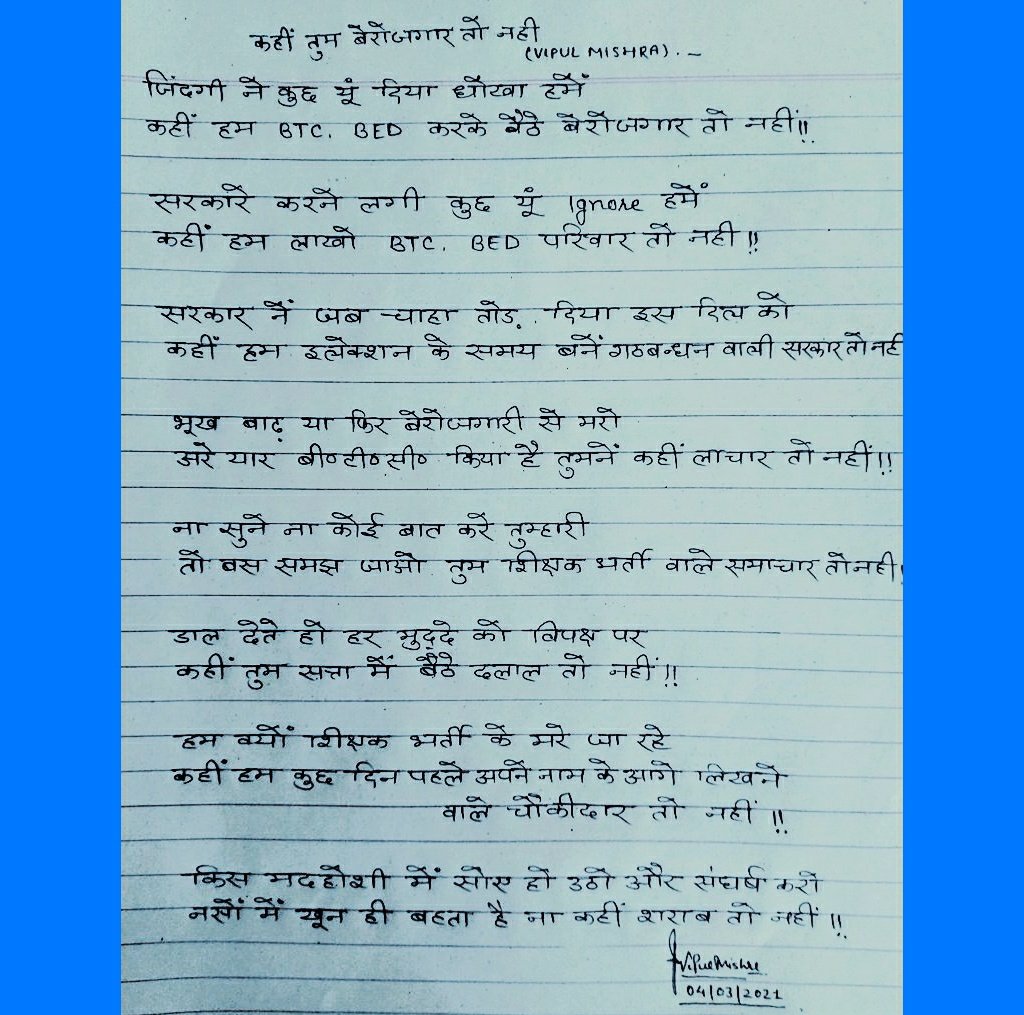 कहीं तुम बेरोजगार तो नही
(VIPUL MISHRA). -
जिंदगी ने कुछ यूं दिया धोखा हमें
कहीं हम BTC. BED करके बैठे बेरोजगार तो नहीं!!
सरकारे करने लगी कुछ यूं Ignore हमें
कहीं हम लाखो BTC. BED परिवार तो नही!!
सरकार नें जब चाहा तोड़ दिया इस दिल को
कहीं हम इलेक्शन के समय बनें गठबन्धन वाली सरकार तो नही
भूख बाढ़ या फिर बेरोजगारी से मरो
अरे यार बी०टी०सी० किया है तुमनें कहीं लाचार तो नहीं!!
ना सुने ना कोई बात करे तुम्हारी
तो बस समझ जाओ तुम शिक्षक भर्ती वाले समाचार तो नही!
डाल देते हो हर मुद्दे को विपक्ष पर
कहीं तुम सत्ता में बैठे दलाल तो नहीं!!
हम क्यों शिक्षक भर्ती के मरे जा रहे
कहीं हम कुछ दिन पहले अपने नाम के आगे लिखने
वाले चौकीदार तो नहीं!!
किस मदहोशी में सोए हो उठो और संघर्ष करो
नसों में खून ही बहता है ना कहीं शराब तो नहीं!!
Vipul Mishra
04/03/2021